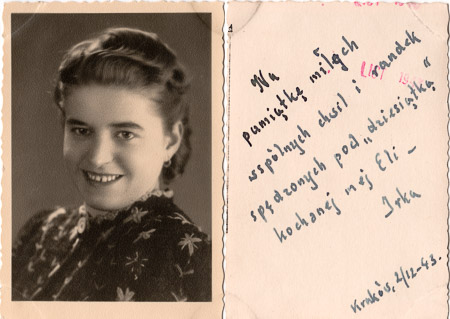 Na
pamiątkę miłych
wspólnych chwil i randek
spędzonych pod „dziesiątką"
kochanej mej Eli -
Irka
Kraków, 2/12-43.